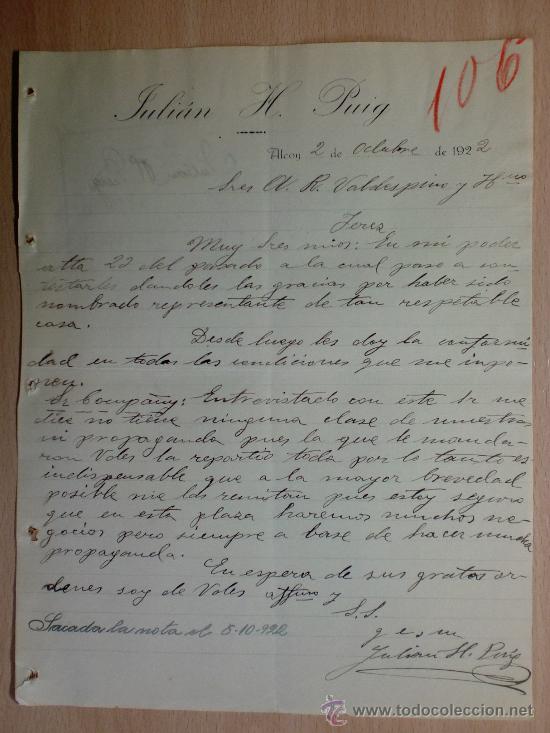 106
Julián H. Puig
Alcoy 2 de Octubre de 1922
Sres A. R. Valdespino y Hno
Jerez
Muy Sres mios: En mi poder
atta 22 del pasado a la cual paso a con-
testarles dandoles las gracias por haber sido
nombrado representante de tan respetable
casa.
Desde luego les doy la conformi
dad en todas las condiciones que me impo-
nen.
Sr Company: Entrevistado con este Sr me
dice no tiene ninguna clase de muestra
ni propaganda pues la que le manda-
ron Vdes la repartio toda por lo tanto es
indispensable que a la mayor brevedad
posible me las remitan pues estoy seguro
que en esta plaza haremos muchos ne-
gocios pero siempre a base de hacer mucha
propaganda.
En espera de sus gratas or-
denes soy de Vdes affmo y
S.S.
q e s m
Julian H. Puig
Sacada la nota el 5-10-922
www.todocoleccion.net